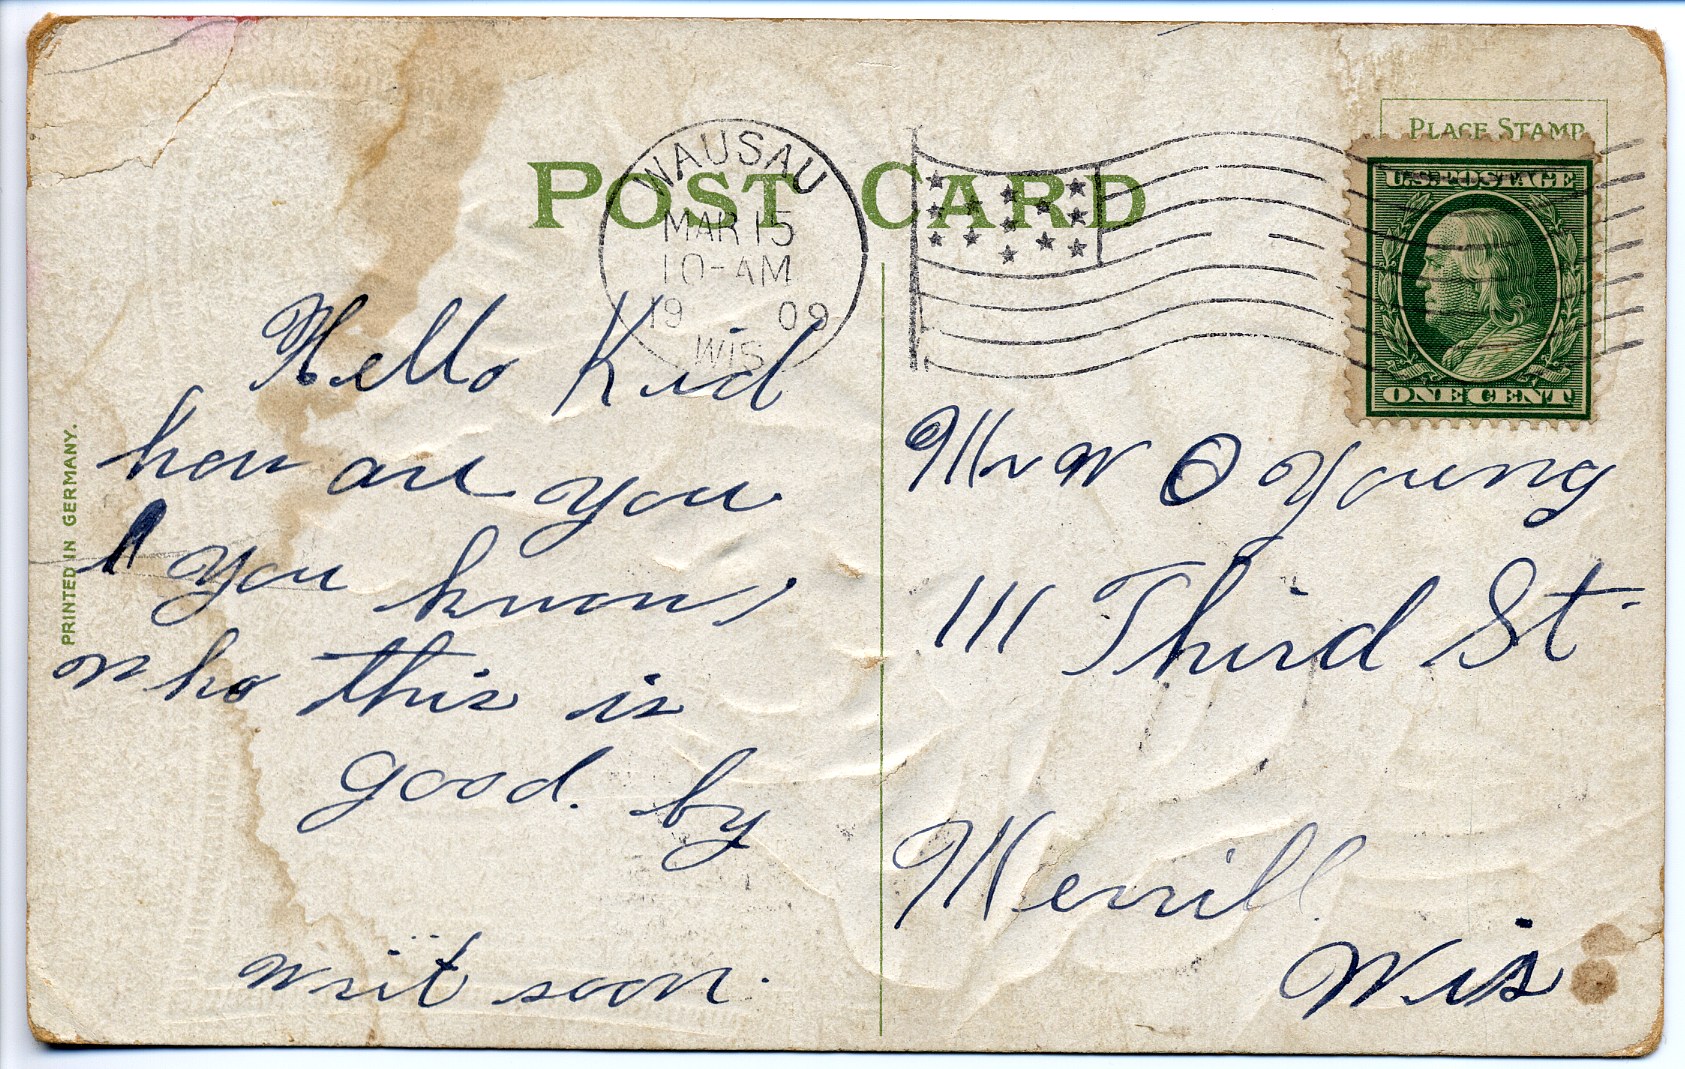 PLACE STAMP
POST CARD
WAUSAU
MAR 15
10-AM
19 09
WIS
U.S. POSTAGE
ONE CENT
PRINTED IN GERMANY.
Hello Kid
how are you
you know
who this is
good. by
writ soon.
Mr W O Young
111 Third St
Merrill
Wis